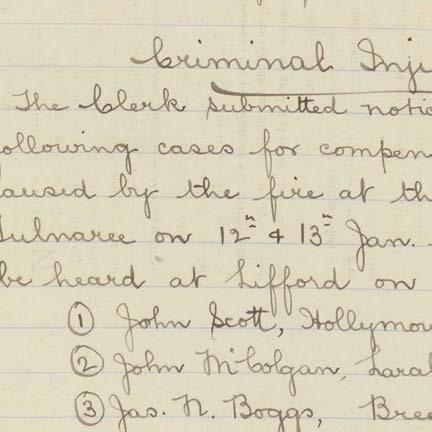 Criminal Inju
The Clerk submitted notic
ollowing cases for compen
aused by the fire at th
ulnaree on 12ⁿ & 13ⁿ Jan.
be heard at Lifford on
① John Scott, Hollymou
② John McColgan, Lara
③ Jas. N. Boggs, Bree